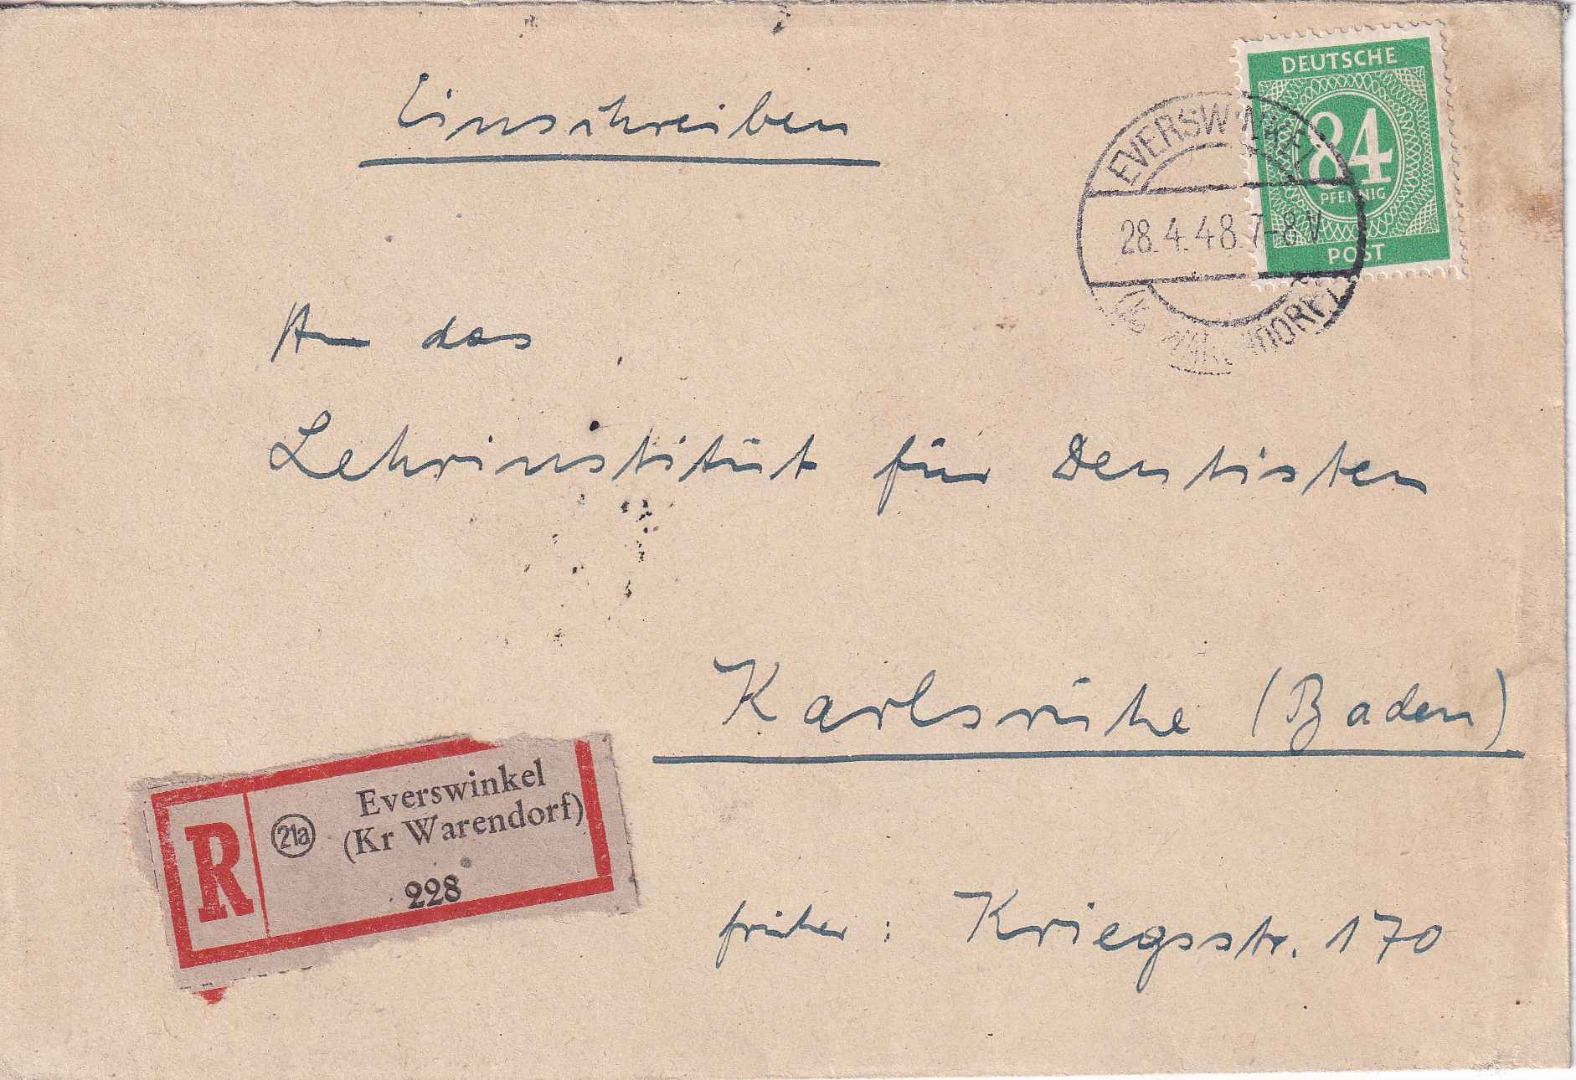 Einschreiben
DEUTSCHE
84
PFENNIG
POST
EVERSWINKEL
28.4.48.7-8V
WARENDORF
An das
Lehrinstitut für Dentisten
Karlsruhe (Baden)
R
21a
Everswinkel
(Kr Warendorf)
228
früher: Kriegsstr. 170